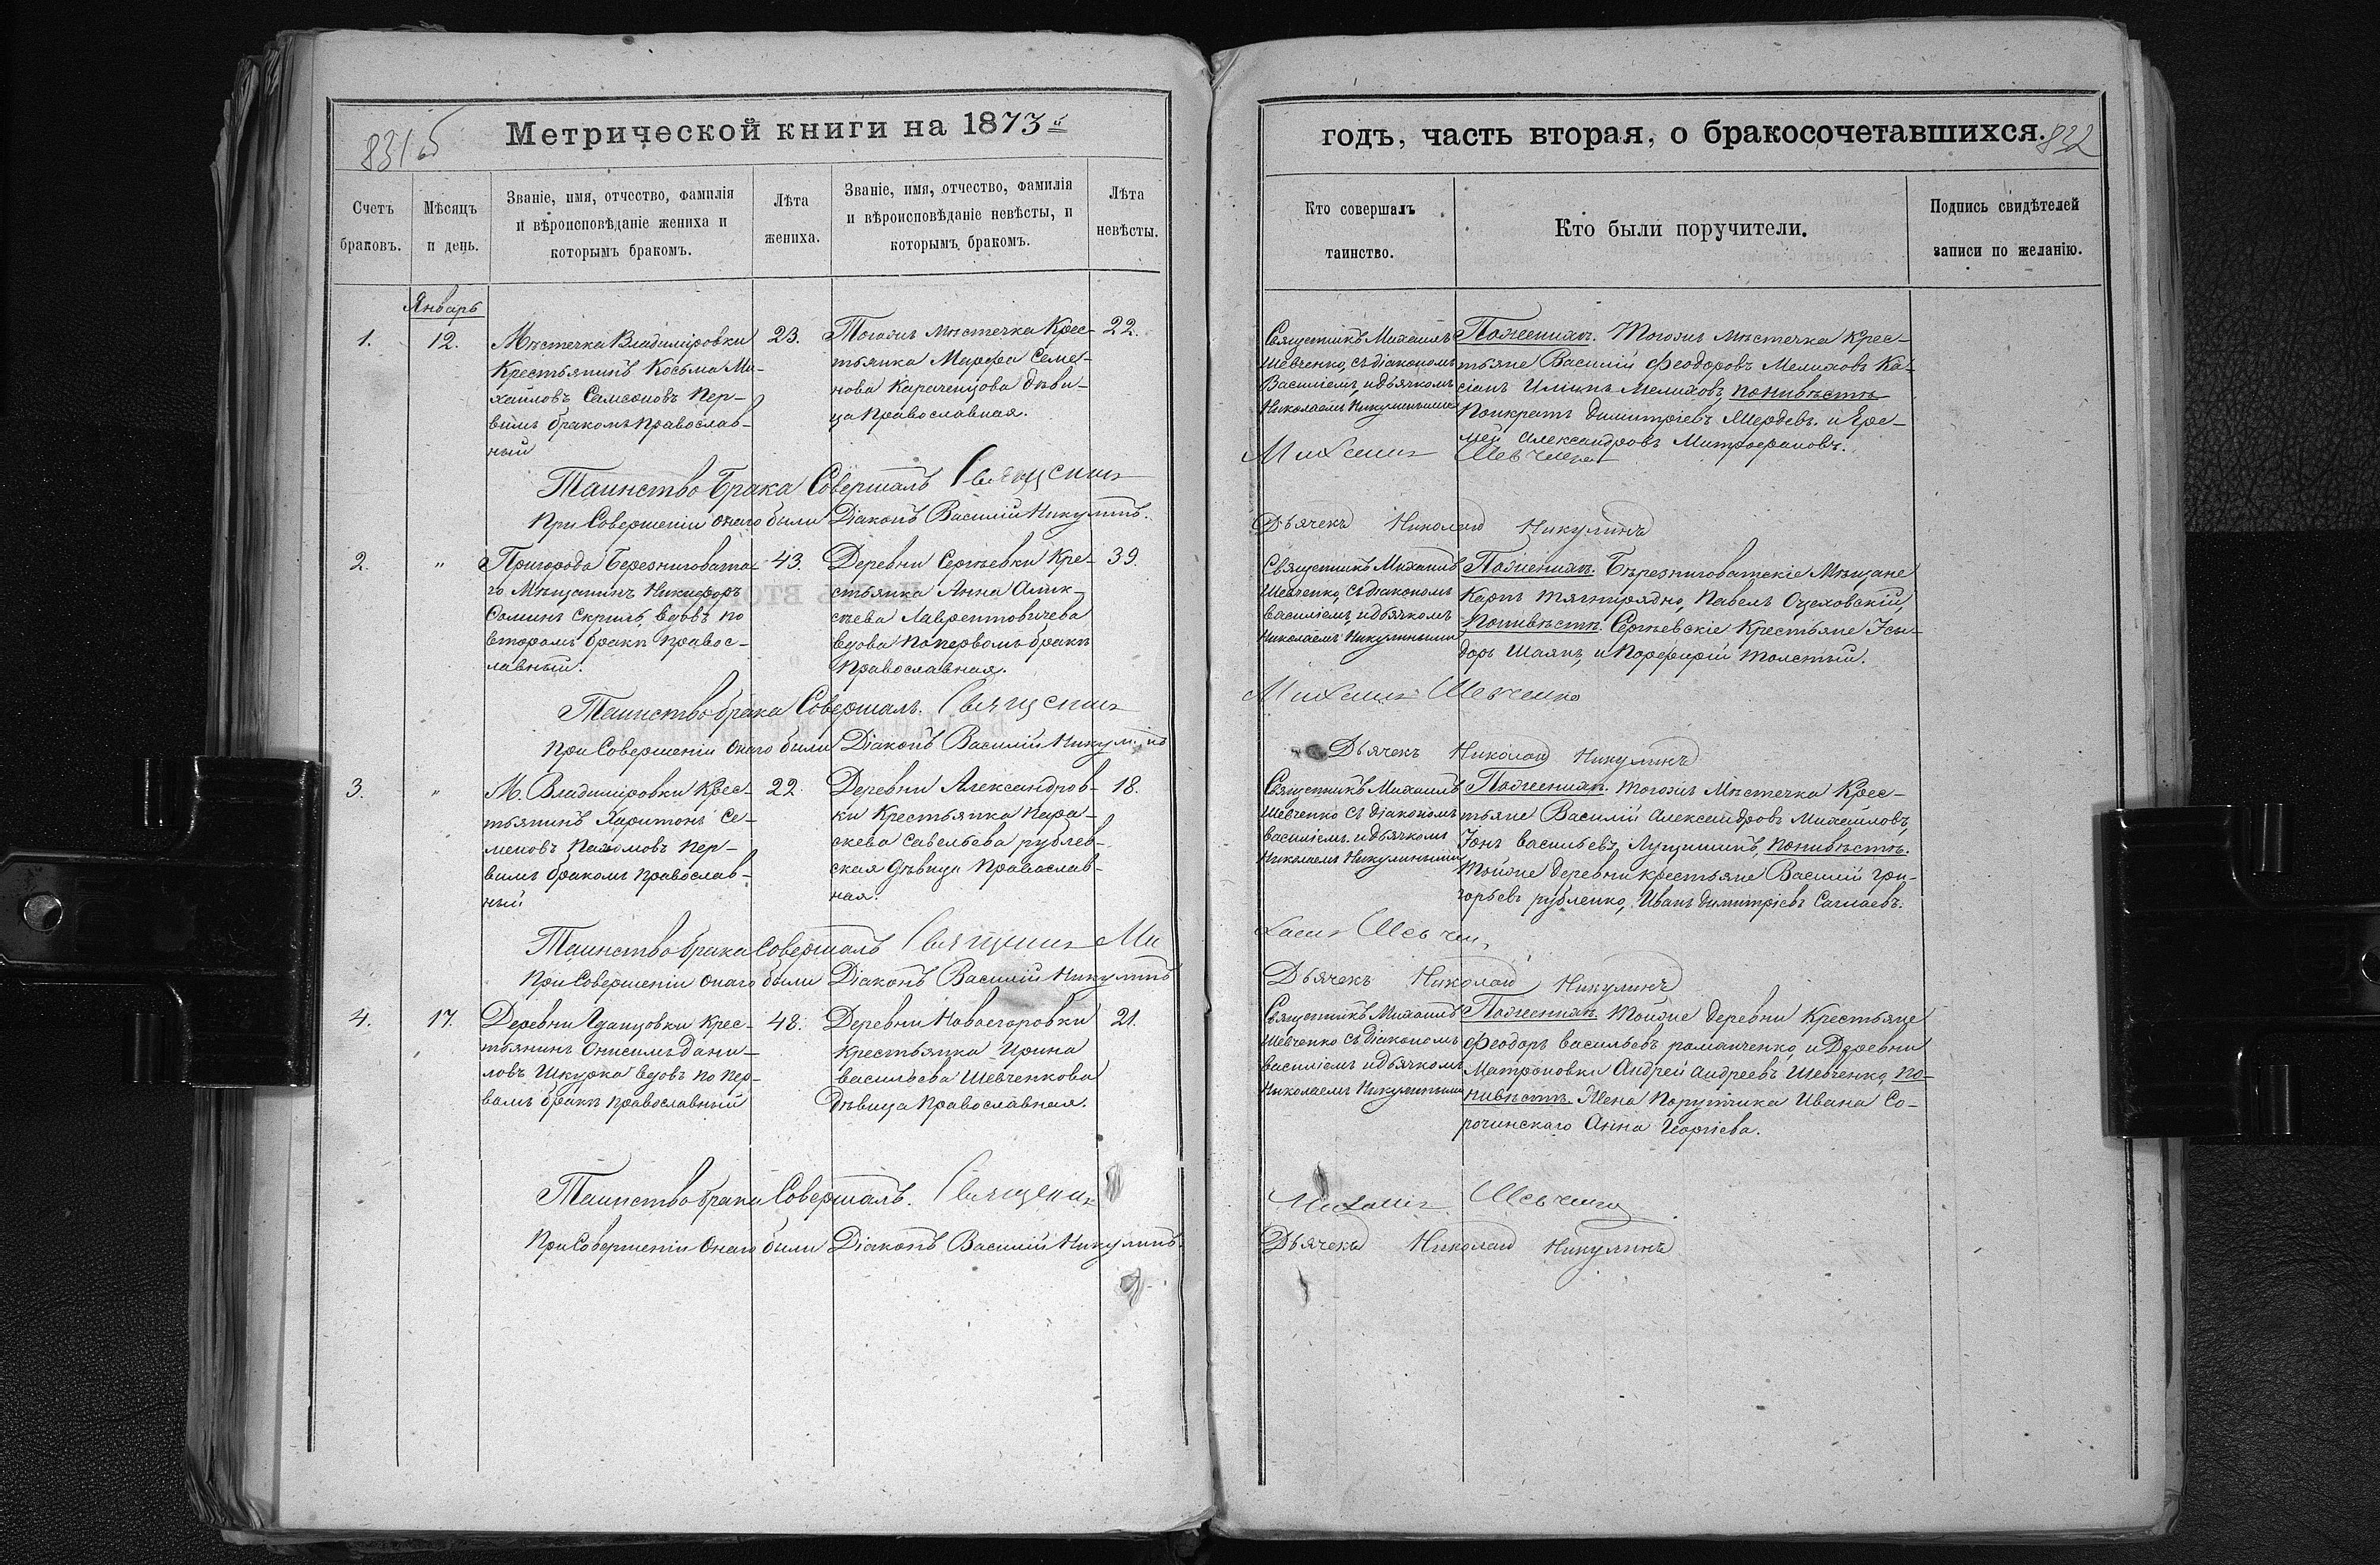 831 об
Метрической книги на 1873й
Счетъ браковъ.
Мѣсяцъ и день.
Званіе, имя, отчество, фамилія
и вѣроисповѣданіе жениха и
которымъ бракомъ.
Лѣта жениха.
Званіе, имя, отчество, фамилія
и вѣроисповѣданіе невѣсты, и
которымъ бракомъ.
Лѣта невѣсты.
Январь
1.
12.
Мѣстечка Владиміровки
Крестьянинъ Косьма Ми-
хайловъ Самсоновъ пер-
вымъ бракомъ православ-
ный
23.
Тогожъ мѣстечка Крес-
тьянка Марфа Семе-
нова Карачен­цова дѣви-
ца православная.
22.
Таинство Брака Совершалъ Священник
При Совершеніи онаго были Діаконъ Василій Никулинъ.
2.
"
Пригорода Березниговата-
го Мѣщанинъ Никифоръ
вдовъ по
второмъ бракѣ правос-
лавный.
43.
Деревни Сергѣевки Кре-
стьянка Анна Алик-
сѣева Лаврентовичева
вдова по первомъ бракѣ
православная.
39.
Таинство брака Совершалъ. Священник
При Совершеніи онаго были Діаконъ Василій Никулинъ
3.
"
М. Владиміровки Крес-
тьянинъ Харитонъ Се-
меновъ Пахомовъ пер-
вымъ бракомъ православ-
ный
22.
Деревни Александров-
ки Крестьянка Пара-
скева Савельева рублев-
ская дѣвица православ-
ная.
18.
Таинство брака Совершалъ Священник Ми
При Совершеніи онаго были Діаконъ Василій Никулинъ
4.
17.
Деревни Крес-
тьянинъ Онисимъ Дани-
ловъ Шкурка вдовъ по пер-
вомъ бракѣ православный
48.
Деревни Новоегоровки
крестьянка Ирина
васильева Шевченкова
Дѣвица православная.
21.
Таинство брака Совершалъ. Священник
При Совершеніи онаго были Діаконъ Василій Никулинъ.
годъ, часть вторая, о бракосочетавшихся.
832
Кто совершалъ таинство.
Кто были поручители.
Подпись свидѣтелей записи по желанію.
Священникъ Михаилъ
Шевченко, съ діакономъ
Василіемъ, и дьячкомъ
Николаемъ Никулиными
По женихѣ. Тогожъ мѣстечка Крес-
тьяне Василій Феодоровъ Мелиховъ Ка-
сіанъ Илiинъ Мелиховъ, по невѣстѣ
Понкратъ Димитріевъ и Ере-
мей Александровъ Митрофановъ.
Михаил Шевченко
Дьячекъ Николай Никулинъ
Священникъ Михаилъ
Шевченко, съ діакономъ
василіемъ, и дьячкомъ
Николаемъ Никулиными
По женихѣ. Бѣрезниговатскіе Мѣщане
Карпъ Павелъ
По невѣстѣ. Сергѣевскіе Крестьяне Iсы-
доръ и Порфирій Толстый.
Михаил Шевченко
Дьячекъ Николай Никулинъ
Священникъ Михаилъ
Шевченко съ Діакономъ
василіемъ, и дьячкомъ
Николаемъ Никулиными
По женихѣ. Тогожъ Мѣстечка Крес-
тьяне Василій Александровъ Михайловъ,
Iонъ васильевъ по невѣстѣ.
Тойже деревни крестьяне Василій Гри-
горьевъ рубленко, Иванъ Димитріевъ
хаил Шевчен
Дьячекъ Николай Никулинъ
Священникъ Михаилъ
Шевченко съ Діакономъ
василіемъ и дьячкомъ
Николаемъ Никулиными
По женихѣ. Тойже деревни Крестьяне
Феодоръ васильевъ романченко, и Деревни
Матроновки Андрей андреевъ Шевченко, по
невѣстѣ. Жена Поручика Ивана Со-
рочинскаго Анна Георгіева.
Михаил Шевченко
Дьячекъ Николай Никулинъ